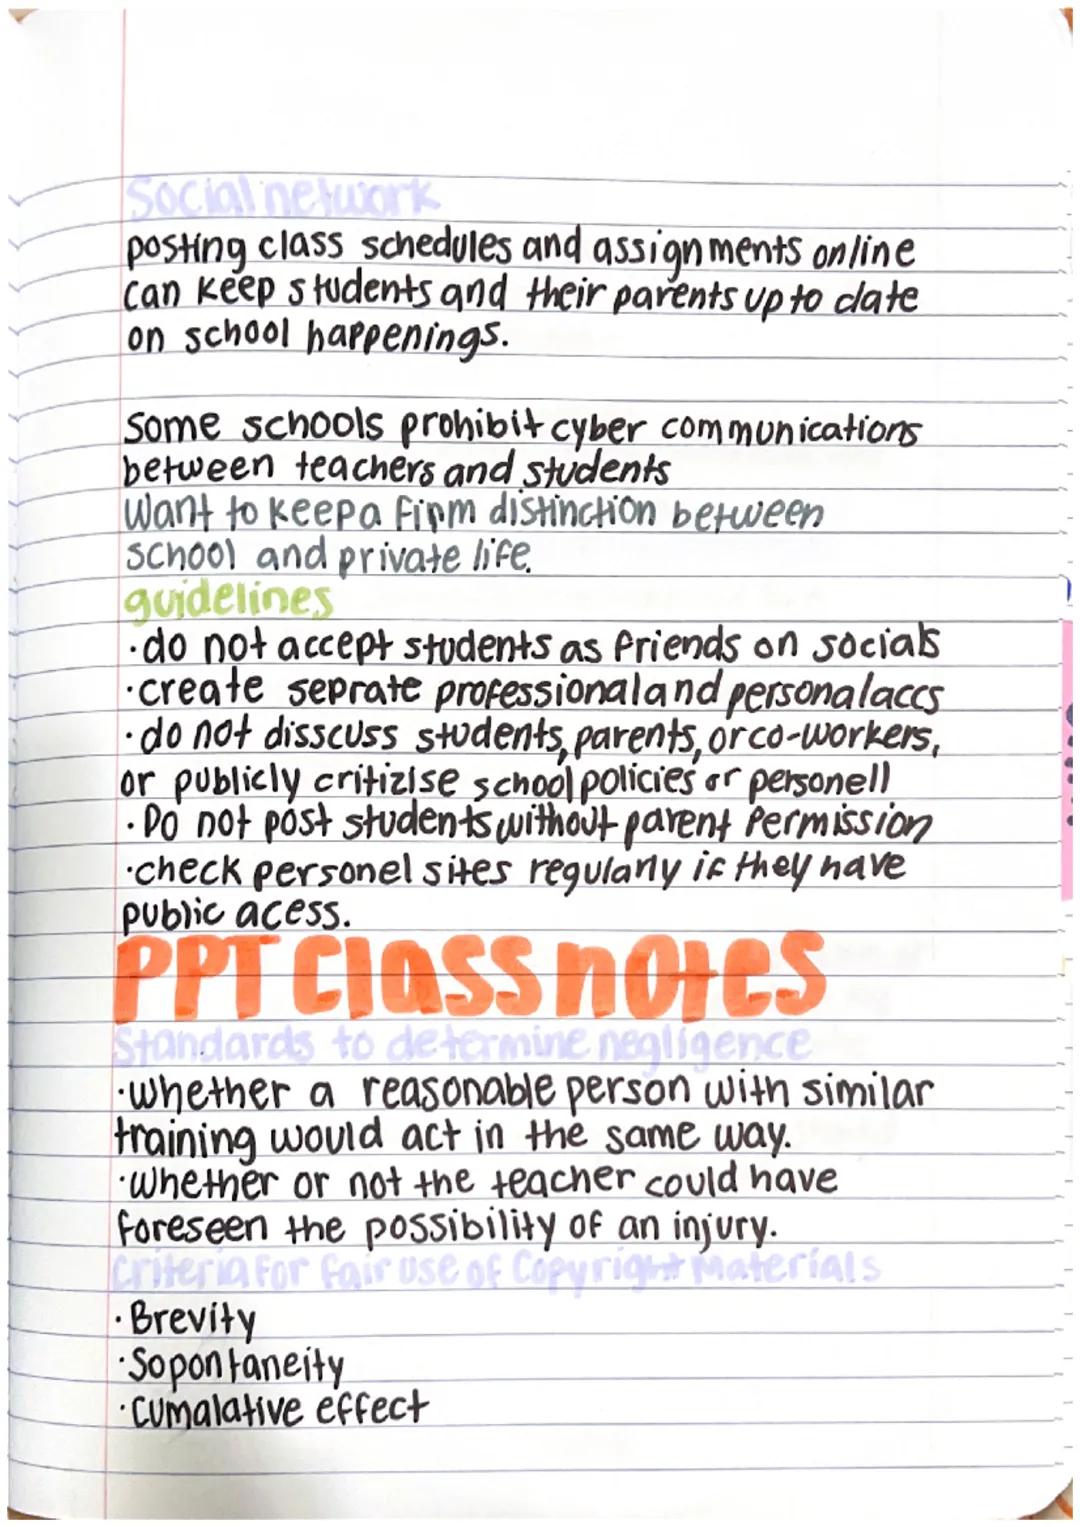 Social network
posting class schedules and assignments online
can keep students and their parents up to date
on school happenings.
Some schools prohibit cyber communications
between teachers and students
Want to keep a firm distinction between
school and private life.
guidelines
·do not accept students as friends on socials
·create seprate professional and personal accs
·do not disscuss students, parents, or co-workers,
or publicly critizise school policies or personell
·Do not post students without parent Permission
·check personel sites regularly if they have
public acess.
PPT Class notes
Standards to determine negligence
·whether a reasonable person with similar
training would act in the same way.
·whether or not the teacher could have
foreseen the possibility of an injury.
Criteria For fair use of Copyright Materials
·Brevity
·Sopontaneity
·Cumalative effect